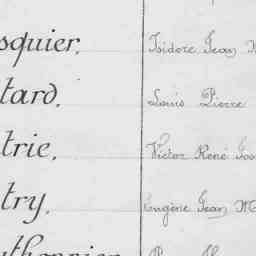 squier. Isidore Jean
tard. Louis Pierre
trie. Victor René
try. Eugène Jean